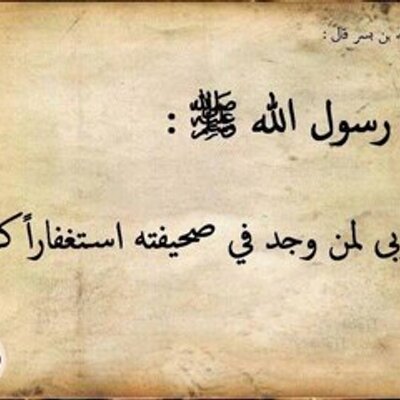 ه بن بسر قال :
رسول الله ﷺ :
بى لمن وجد في صحيفته استغفاراً ك